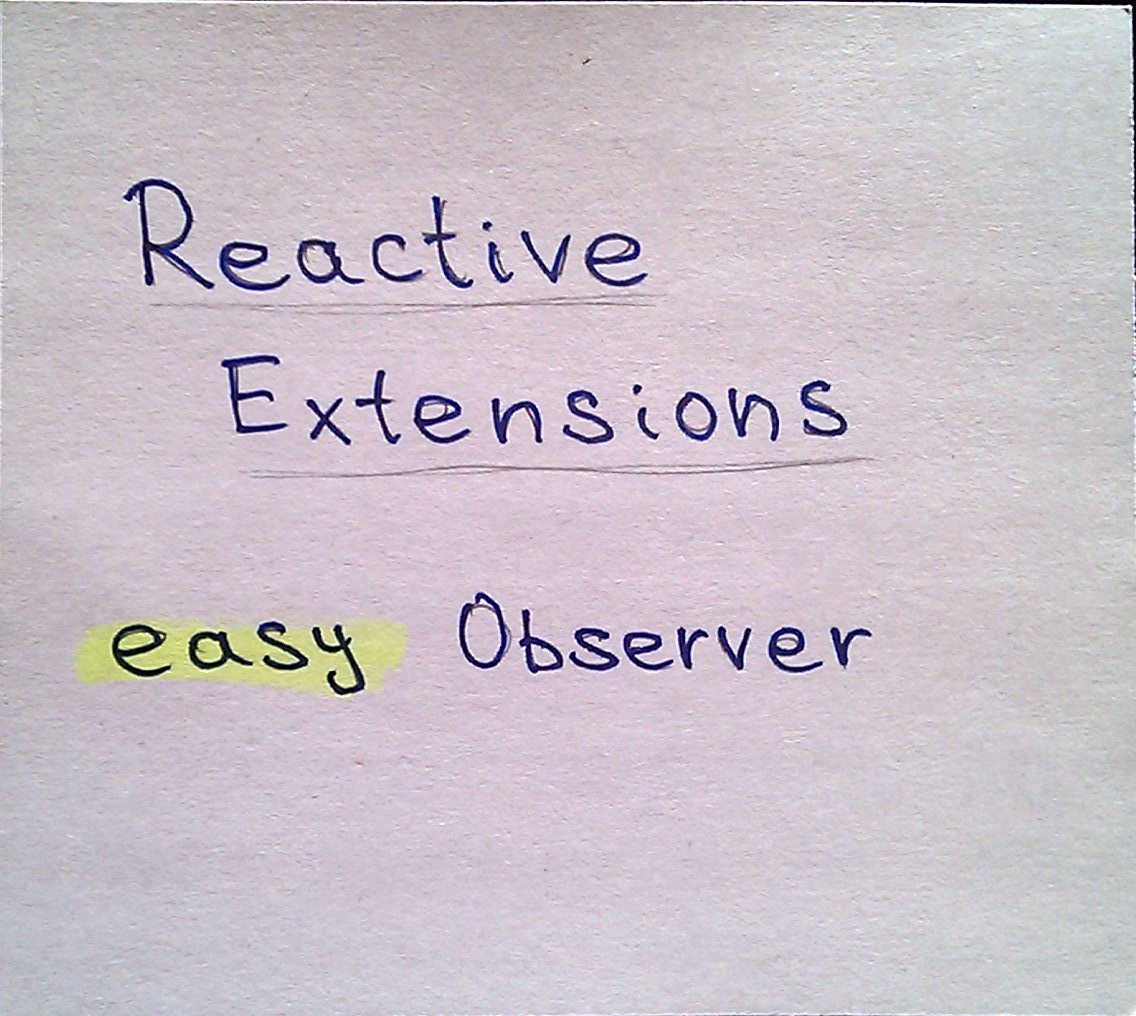 Reactive
Extensions
easy Observer